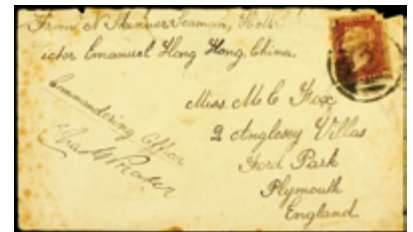 From N Skinner Seaman, H.M.
Victor Emanuel Hong Hong, China,
Commanding Officer
Miss. M. C Fox
2 Anglesey Villas
Ford Park
Plymouth
England